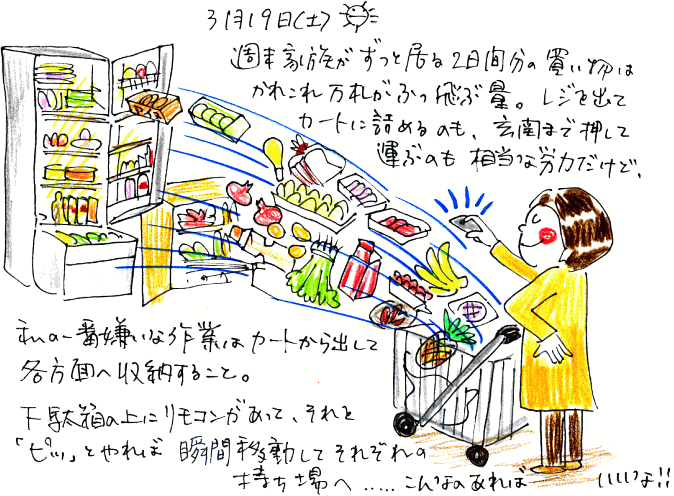 3月19日(土)
週末家族がずっと居る2日間分の買い物は
かれこれ万札がぶっ飛ぶ量。レジを出て
カートに詰めるのも、玄関まで押して
運ぶのも相当な労力だけど、
私の一番嫌いな作業はカートから出して
各方面へ収納すること。
下駄箱の上にリモコンがあって、それを
「ピッ」とやれば瞬間移動してそれぞれの
持ち場へ.....こんなのあれば いいよ!!